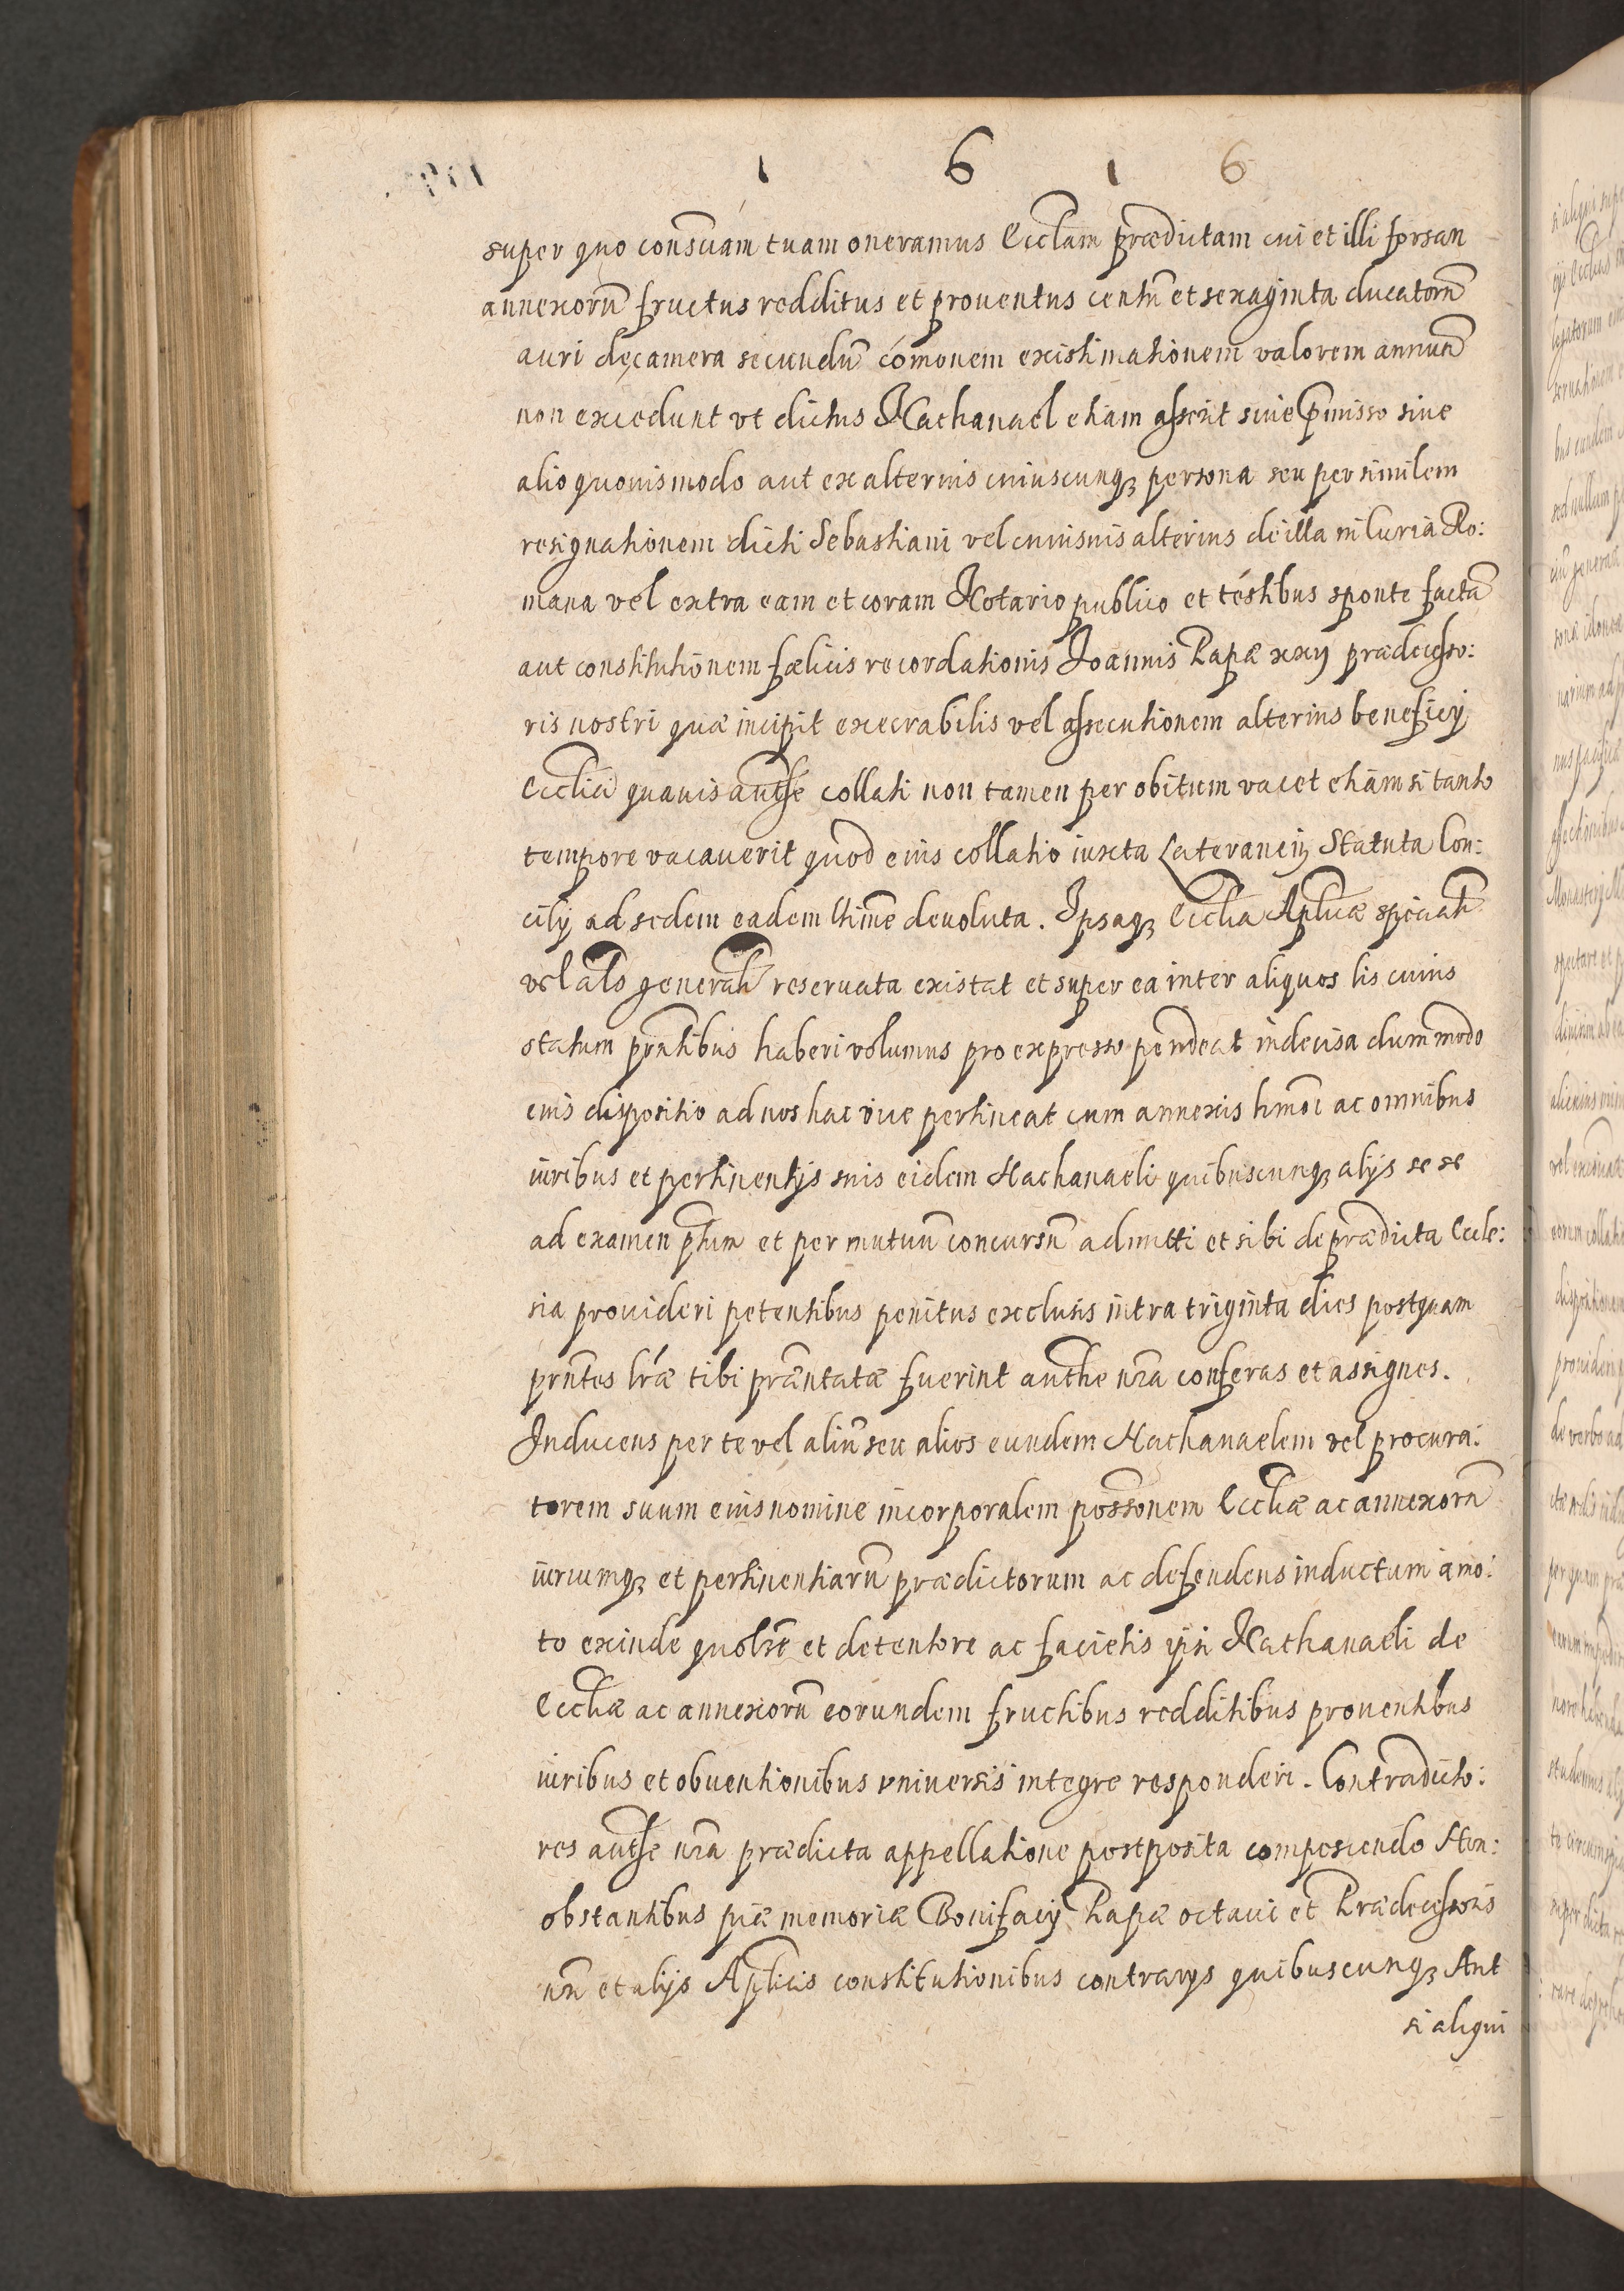 1 6 1 6
super quo consc̃iam tuam oneramus Eccl̃am prædictam cui et illi forsan
annexorũ fructus redditus et prouentus centũ et sexaginta ducatorũ
auri de camera secundũ com̃onem existimationem valorem annuũ
non excedunt vt dictus Nathanael etiam asserit siue p̃misso siue
alio quouismodo aut ex alterius cuiuscunqꝫ persona seu per similem
resignationem dicti Sebastiani vel cuiusuis alterius de illa in Curia Ro:
mana vel extra eam et coram Notario publico et testibus sponte factã
aut constitutionem fælicis recordationis Joannis Papæ xxij prædecesso:
ris nostri quæ incipit execrabilis vel assecutionem alterius beneficij
Ecclĩci quauis authẽ collati non tamen per obitum vacet etiam si tanto
tempore vacauerit quod eius collatio iuxta Lateraneñ Statuta Con:
cilij ad sedem eadem l̃time deuoluta. Ipsaqꝫ Eccl̃ia Apl̃icæ spẽciali
vel al̃s generali reseruata existat et super ea inter aliquos lis cuius
statum prñtibus haberi volumus pro expresso pendeat indecisa dummodo
eius dispositio ad nos hac vice pertineat cum annexis hmõi ac omnibus
iuribus et pertinentijs suis eidem Nathanaeli quibuscunqꝫ alijs se se
ad examen p̃tum et per mutuũ concursũ admitti et sibi de prædicta Eccle:
sia prouideri petentibus penitus exclusis intra triginta dies postquam
prñtes lræ tibi præntatæ fuerint authẽ nr̃a conferas et assignes.
Inducens per te vel aliũ seu alios eundem Nathanaelem vel procura:
torem suum eius nomine in corporalem possõnem Eccl̃iæ ac annexorũ
iuriumqꝫ et pertinentiarũ prædictorum ac defendens inductum amo:
to exinde quolr̃e et detentore ac facietis ipsi Nathanaeli de
Eccl̃iæ ac annexorũ eorundem fructibus redditibus prouentibus
iuribus et obuentionibus vniuersis integre responderi. Contradicto:
res authẽ nr̃a prædicta appellatione postposita compescendo Non:
obstantibus piæ memoriæ Bonifacij Papæ octaui et Prædecessoris
nr̃i et alijs Apl̃icis constitutionibus contrarijs quibuscunqꝫ Aut
si aliqui